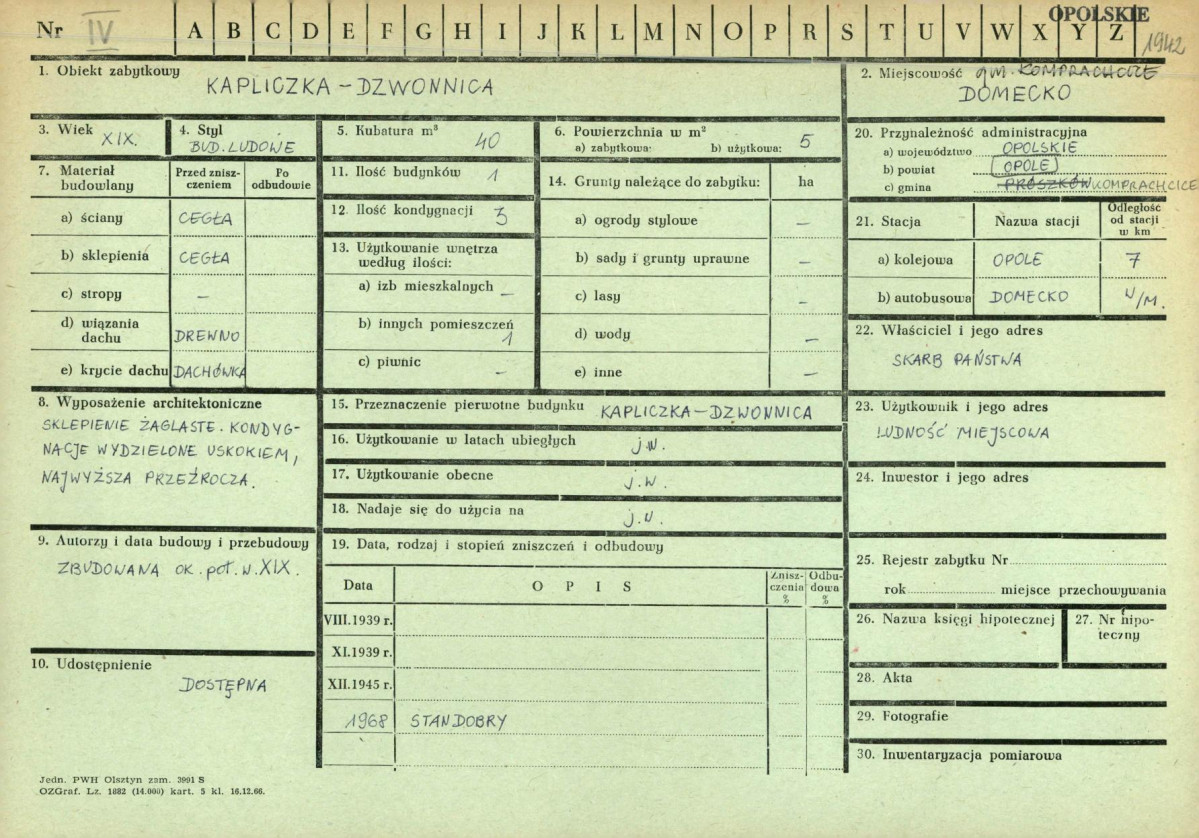 Nr IV A B C D E F G H I J K L M N O P R S T U V W X Y Z OPOLSKIE
1942
1. Obiekt zabytkowy
KAPLICZKA – DZWONNICA
2. Miejscowość gm. KOMPRACHCICE
DOMECKO
3. Wiek XIX.
4. Styl
BUD. LUDOWE
5. Kubatura m³ 40
6. Powierzchnia w m²
a) zabytkowa: b) użytkowa: 5
7. Materiał budowlany
Przed zniszczeniem
Po odbudowie
a) ściany CEGŁA
b) sklepienia CEGŁA
c) stropy –
d) wiązania dachu DREWNO
e) krycie dachu DACHÓWKA
8. Wyposażenie architektoniczne
SKLEPIENIE ŻAGLASTE. KONDYG-
NACJE WYDZIELONE USKOKIEM,
NAJWYŻSZA PRZEŹROCZA.
9. Autorzy i data budowy i przebudowy
ZBUDOWANA OK. poł. W. XIX.
10. Udostępnienie
DOSTĘPNA
11. Ilość budynków 1
12. Ilość kondygnacji 3
13. Użytkowanie wnętrza
według ilości:
a) izb mieszkalnych –
b) innych pomieszczeń 1
c) piwnic –
14. Grunty należące do zabytku: ha
a) ogrody stylowe –
b) sady i grunty uprawne –
c) lasy –
d) wody –
e) inne –
15. Przeznaczenie pierwotne budynku KAPLICZKA – DZWONNICA
16. Użytkowanie w latach ubiegłych j.w.
17. Użytkowanie obecne j.w.
18. Nadaje się do użycia na j.w.
19. Data, rodzaj i stopień zniszczeń i odbudowy
Data O P I S Zniszczenia % Odbudowa %
VIII.1939 r.
XI.1939 r.
XII.1945 r.
1968 STAN DOBRY
20. Przynależność administracyjna
a) województwo OPOLSKIE
b) powiat OPOLE
c) gmina PRÓSZKÓW KOMPRACHCICE
21. Stacja Nazwa stacji Odległość od stacji w km
a) kolejowa OPOLE 7
b) autobusowa DOMECKO W/M.
22. Właściciel i jego adres
SKARB PAŃSTWA
23. Użytkownik i jego adres
LUDNOŚĆ MIEJSCOWA
24. Inwestor i jego adres
25. Rejestr zabytku Nr
rok miejsce przechowywania
26. Nazwa księgi hipotecznej
27. Nr hipo-
teczny
28. Akta
29. Fotografie
30. Inwentaryzacja pomiarowa
Jedn. PWH Olsztyn zam. 3991 S
OZGraf. Lz. 1882 (14.000) kart. 5 kl. 16.12.66.